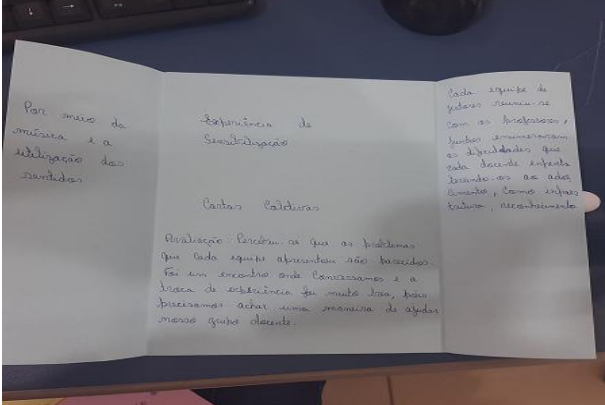 Por meio da
música e a
utilização dos
sentidos
Experiência de
Sensibilização
Cartas Coletivas
Avaliação: Percebeu-se que os problemas
que cada equipe apresentou são parecidos.
Foi um encontro onde conversamos e a
troca de experiência foi muito boa, pois
precisamos achar uma maneira de ajudar
nosso grupo docente.
Cada equipe de
gestores reuniu-se
com os professores,
juntos enumeraram
as dificuldades que
cada docente enfrenta
levando-os ao adoe
cimento, como infraes
trutura, reconhecimento